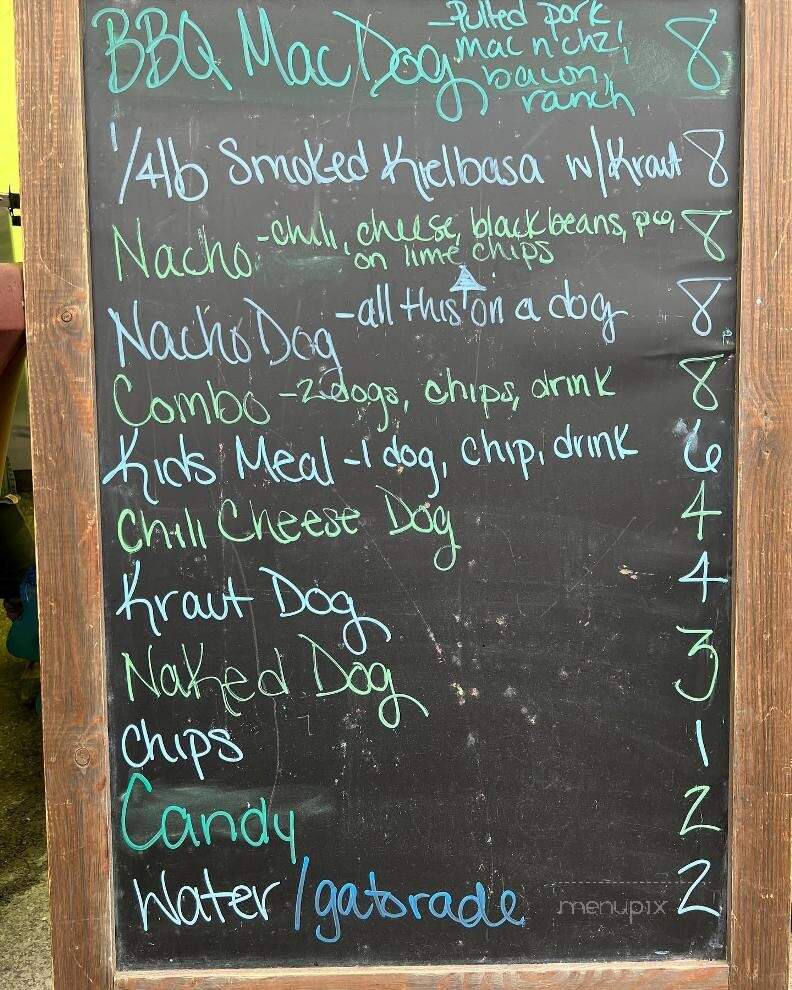 BBQ Mac Dog - Pulled pork, 8
mac n' chz,
bacon,
ranch
1/4lb Smoked Kielbasa w/Kraut 8
Nacho - chili, cheese, black beans, pico, 8
on lime chips
Nacho Dog - all this on a dog 8
Combo - 2 dogs, chips, drink 8
Kids Meal - 1 dog, chip, drink 6
Chili Cheese Dog 4
Kraut Dog 4
Naked Dog 3
Chips 1
Candy 2
Water/gatorade 2
menupix